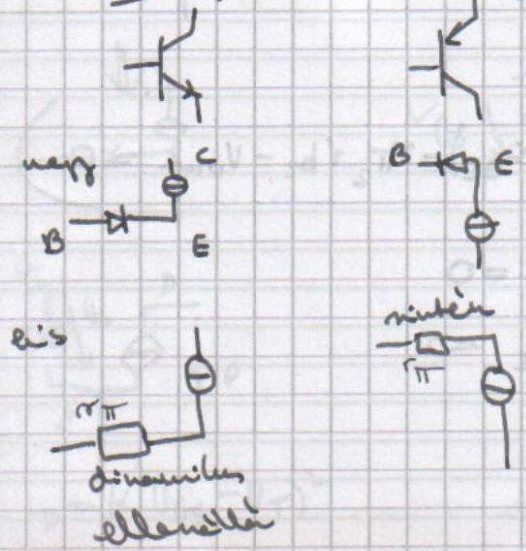 nagy
C
B
E
B
E
kis
rπ
dinamikus
ellenállás
szintén
rπ